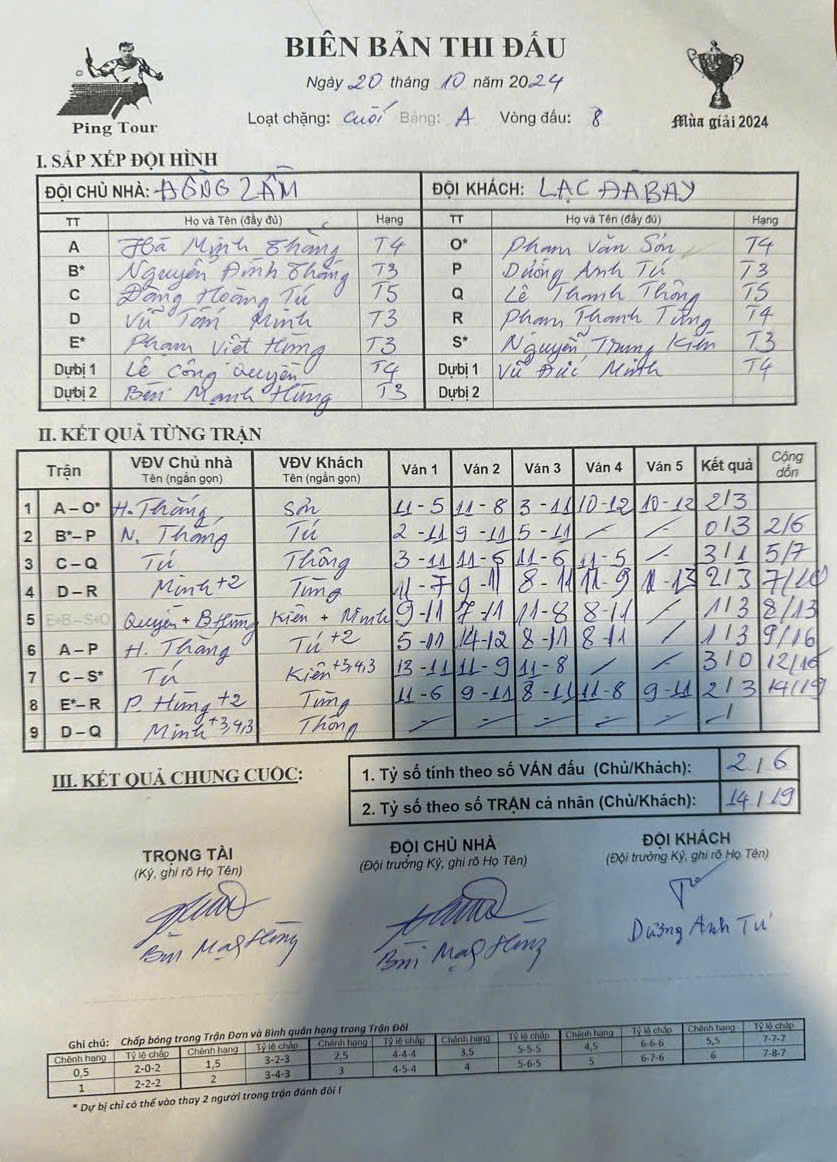 BIÊN BẢN THI ĐẤU
Ngày 20 tháng 10 năm 2024
Ping Tour
Loạt chặng: Cuối Bảng: A Vòng đấu: 8
Mùa giải 2024
I. SẮP XẾP ĐỘI HÌNH
ĐỘI CHỦ NHÀ: ĐỒNG LẦM ĐỘI KHÁCH: LẠC ĐÀ BAY
TT Họ và Tên (đầy đủ) Hạng TT Họ và Tên (đầy đủ) Hạng
A Hà Minh Thắng T4 O* Phạm Văn Sơn T4
B* Nguyễn Đình Thắng T3 P Dương Anh Tú T3
C Đặng Hoàng Tú T5 Q Lê Thanh Thông T5
D Vũ Tấn Minh T3 R Phạm Thanh Tùng T4
E* Phạm Viết Hùng T3 S* Nguyễn Trung Kiên T3
Dự bị 1 Lê Công Quyền T4 Dự bị 1 Vũ Đức Minh T4
Dự bị 2 Bùi Mạnh Hùng T3 Dự bị 2
II. KẾT QUẢ TỪNG TRẬN
Trận VĐV Chủ nhà Tên (ngắn gọn) VĐV Khách Tên (ngắn gọn) Ván 1 Ván 2 Ván 3 Ván 4 Ván 5 Kết quả Cộng dồn
1 A – O* H. Thắng Sơn 11 - 5 11 - 8 3 - 11 10 - 12 10 - 12 2/3
2 B* – P N. Thắng Tú 2 - 11 9 - 11 5 - 11 - - 0/3 2/6
3 C – Q Tú Thông 3 - 11 11 - 6 11 - 6 11 - 5 - 3/1 5/7
4 D – R Minh+2 Tùng 11 - 7 9 - 11 8 - 11 11 - 9 11 - 13 2/3 7/10
5 E+B – S+O Quyền + B Hùng Kiên + Minh 9 - 11 7 - 11 11 - 8 8 - 11 / 1/3 8/13
6 A – P H. Thắng Tú+2 5 - 11 14 - 12 8 - 11 8 - 11 - 1/3 9/16
7 C – S* Tú Kiên+3,4,3 13 - 11 11 - 9 11 - 8 - - 3/0 12/16
8 E* – R P. Hùng+2 Tùng 11 - 6 9 - 11 8 - 11 11 - 8 9 - 11 2/3 14/19
9 D – Q Minh+3,4,3 Thông - - - - - /
III. KẾT QUẢ CHUNG CUỘC:
1. Tỷ số tính theo số VÁN đấu (Chủ/Khách): 2/6
2. Tỷ số theo số TRẬN cá nhân (Chủ/Khách): 14/19
TRỌNG TÀI ĐỘI CHỦ NHÀ ĐỘI KHÁCH
(Ký, ghi rõ Họ Tên) (Đội trưởng Ký, ghi rõ Họ Tên) (Đội trưởng Ký, ghi rõ Họ Tên)
Bùi Mạnh Hùng Bùi Mạnh Hùng Dương Anh Tú
Ghi chú: Chấp bóng trong Trận Đơn và Bình quân hạng trong Trận Đôi
Chênh hạng Tỷ lệ chấp Chênh hạng Tỷ lệ chấp Chênh hạng Tỷ lệ chấp Chênh hạng Tỷ lệ chấp Chênh hạng Tỷ lệ chấp Chênh hạng Tỷ lệ chấp
0,5 2-0-2 1,5 3-2-3 2,5 4-4-4 3,5 5-5-5 4,5 6-6-6 5,5 7-7-7
1 2-2-2 2 3-4-3 3 4-5-4 4 5-6-5 5 6-7-6 6 7-8-7
* Dự bị chỉ có thể vào thay 2 người trong trận đánh đôi !